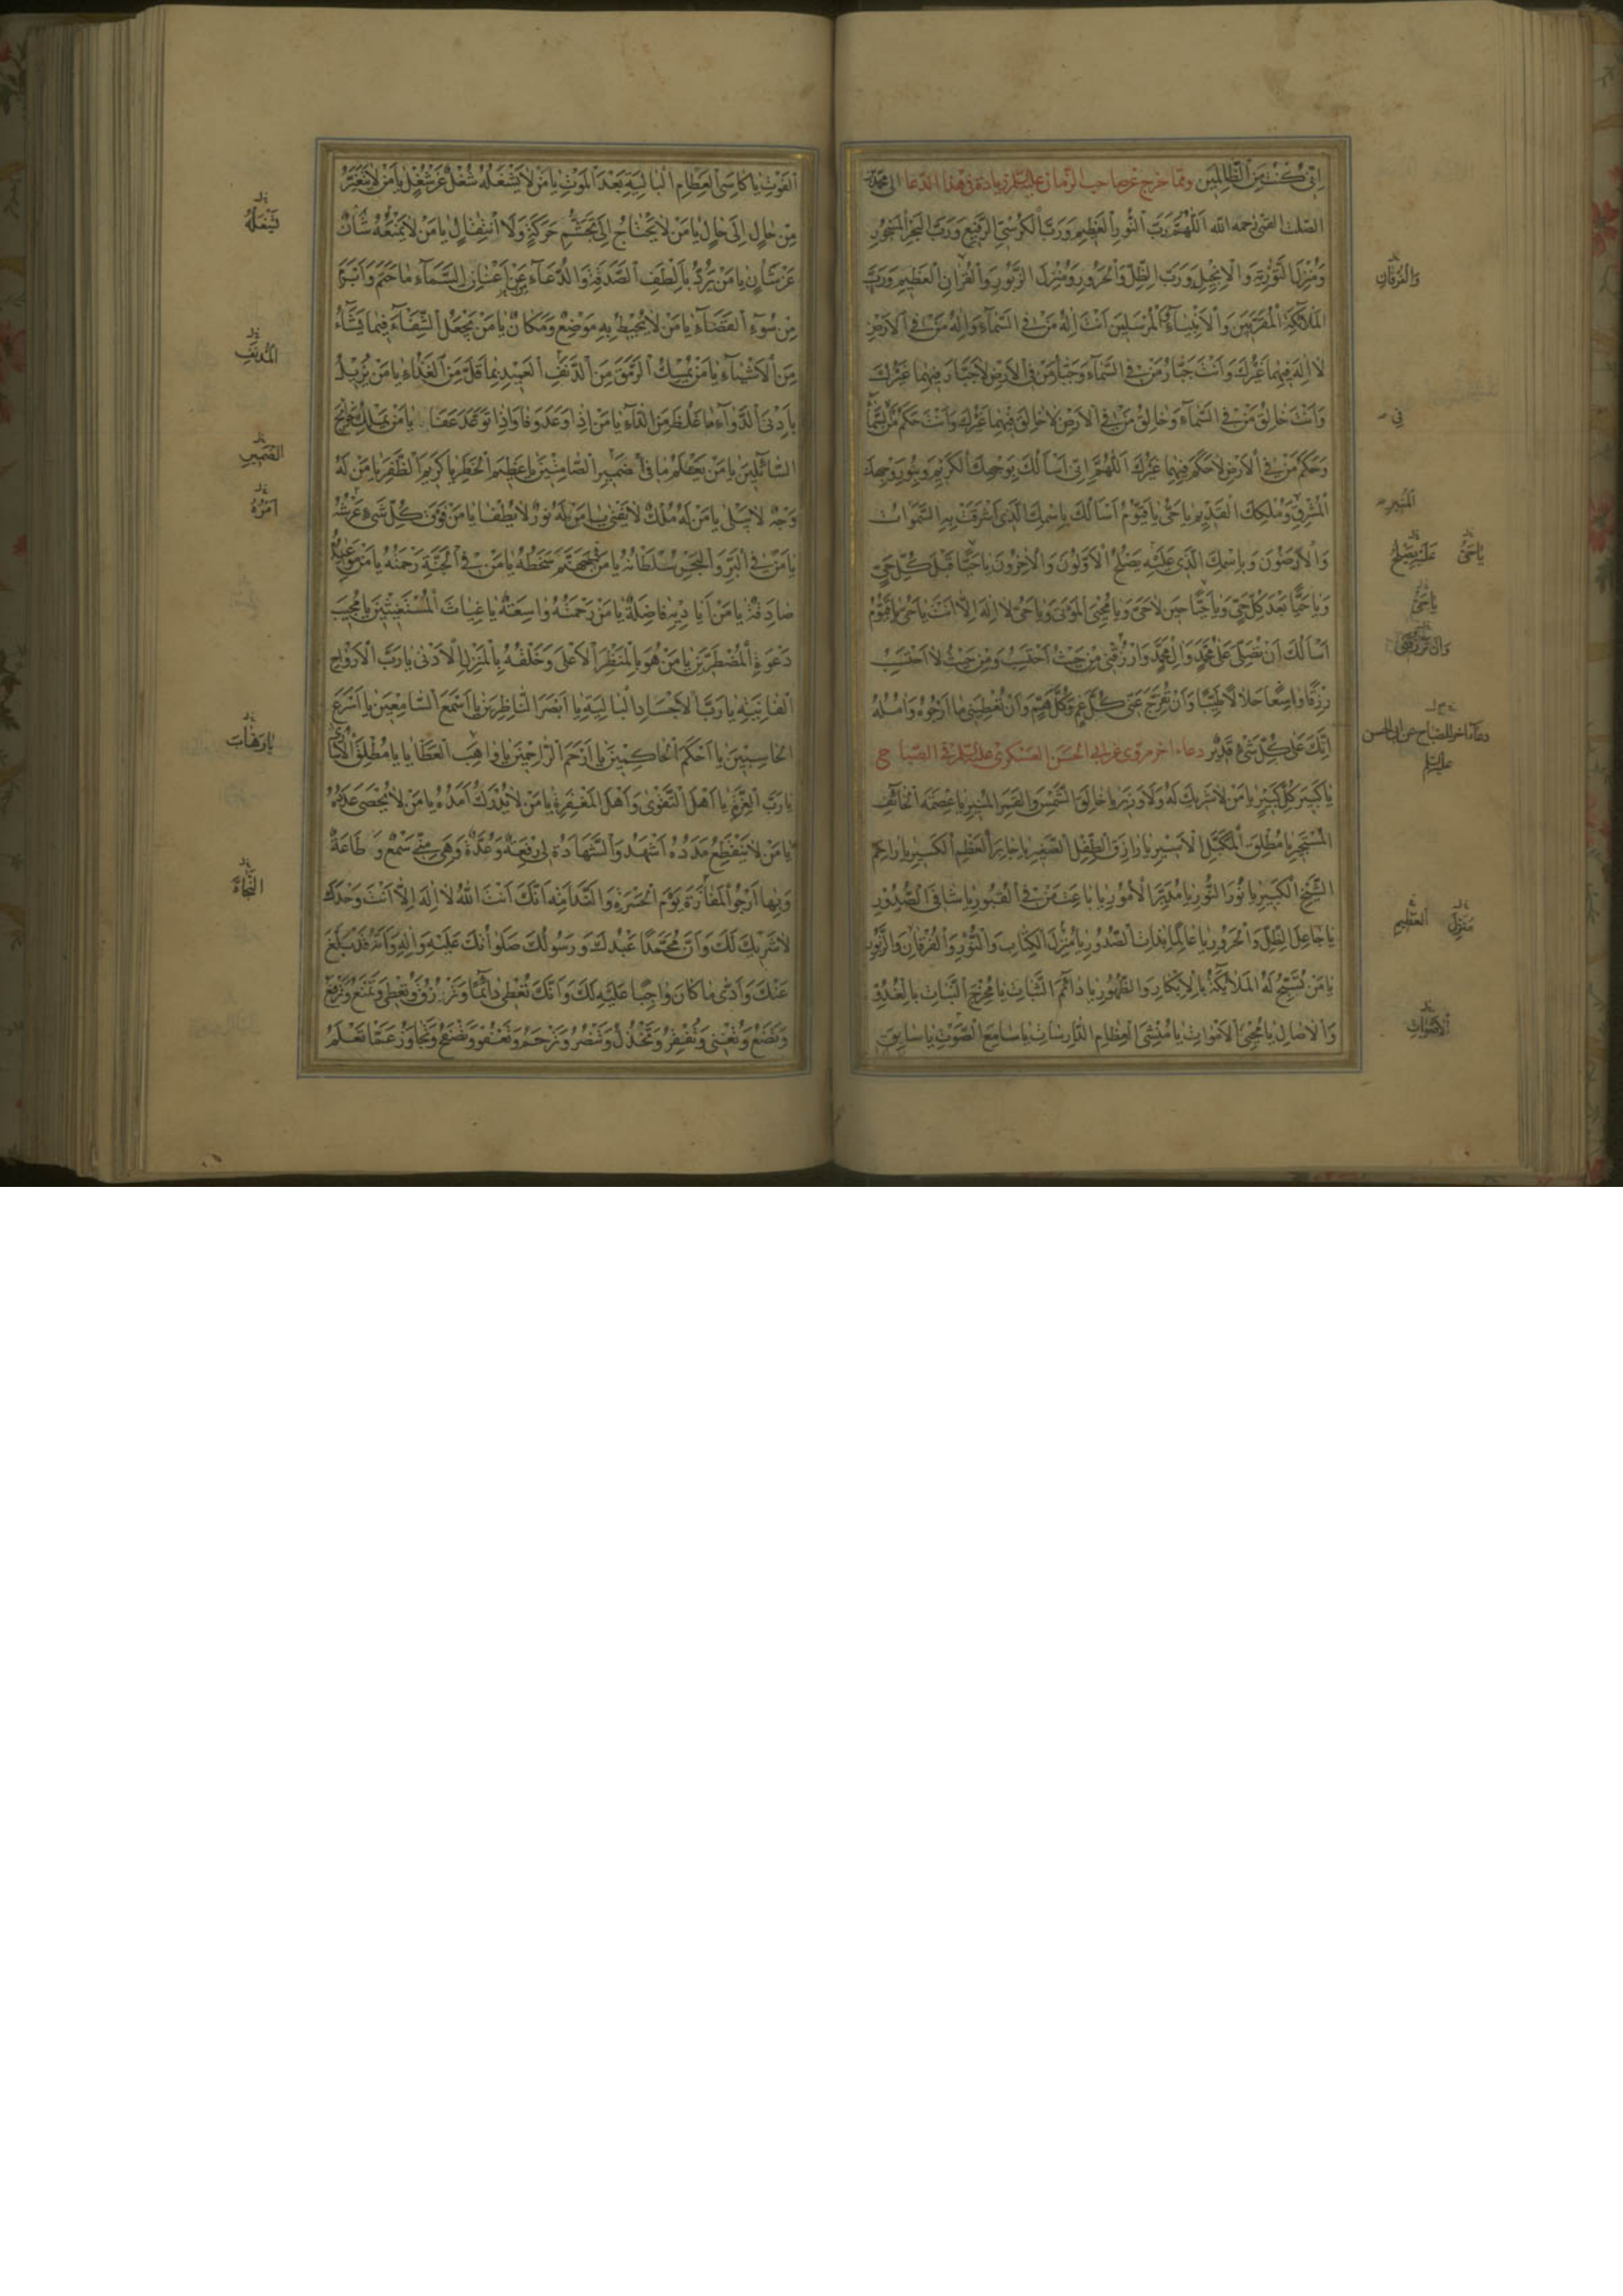 اِنّى كُنْتُ مِنَ الظّالِمينَ وممّا خرج عن صاحب الزّمان عليه السّلم زيادة فى هذا الدّعا الى محمّد بن
الصّلت القمى رحمه الله اَللّهُمَّ رَبَّ النُّورِ الْعَظيمِ وَرَبَّ الْكُرْسِيِّ الرَّفيعِ وَرَبَّ الْبَحْرِ الْمَسْجُورِ
وَمُنْزِلَ التَّوْرٰيةِ وَالْاِنْجيلِ وَرَبَّ الظِّلِّ وَالْحَرُورِ وَمُنْزِلَ الزَّبُورِ وَالْقُرْانِ الْعَظيمِ وَرَبَّ
وَالْفُرْقانِ
الْمَلآئِكَةِ الْمُقَرَّبينَ وَالْاَنْبِيآءِ الْمُرْسَلينَ اَنْتَ اِلهُ مَنْ فِى السَّمآءِ وَاِلهُ مَنْ فِى الْاَرْضِ
لا اِلهَ فيهِما غَيْرُكَ وَاَنْتَ جَبّارُ مَنْ فِى السَّمآءِ وَجَبّارُ مَنْ فِى الْاَرْضِ لا جَبّارَ فيهِما غَيْرُكَ
وَاَنْتَ خالِقُ مَنْ فِى السَّمآءِ وَخالِقُ مَنْ فِى الْاَرْضِ لا خالِقَ فيهِما غَيْرُكَ وَاَنْتَ حَكَمُ مَنْ السَّمآءِ
فى
وَحَكَمُ مَنْ فِى الْاَرْضِ لا حَكَمَ فيهِما غَيْرُكَ اَللّهُمَّ اِنّى اَسْاَلُكَ بِوَجْهِكَ الْكَريمِ وَبِنُورِ وَجْهِكَ
الْمُشْرِقِ وَمُلْكِكَ الْقَديمِ يا حَىُّ يا قَيُّومُ اَسْاَلُكَ بِاسْمِكَ الَّذى اَشْرَقَتْ بِهِ السَّمٰواتُ
الْمُنيرِ
وَالْاَرَضُونَ وَبِاسْمِكَ الَّذى عَلَيْهِ يَصْلَحُ الْاَوَّلُونَ وَالْاخِرُونَ يا حَيًّا قَبْلَ كُلِّ حَىٍّ
يا حَىُّ عَلَيْهِ يَصْلَحُ
وَيا حَيًّا بَعْدَ كُلِّ حَىٍّ وَيا حَيًّا حينَ لا حَىَّ وَيا مُحْيِىَ الْمَوْتى وَيا حَىُّ لا اِلهَ اِلّا اَنْتَ يا حَىُّ يا قَيُّومُ
يا حَىُّ
اَسْاَلُكَ اَنْ تُصَلِّىَ عَلى مُحَمَّدٍ وَالِ مُحَمَّدٍ وَارْزُقْنى مِنْ حَيْثُ اَحْتَسِبُ وَمِنْ حَيْثُ لا اَحْتَسِبُ
وَاَنْ تَرْزُقَنى
رِزْقًا واسِعًا حَلالًا طَيِّبًا وَاَنْ تُفَرِّجَ عَنّى كُلَّ غَمٍّ وَكُلَّ هَمٍّ وَاَنْ تُعْطِيَنى ما اَرْجُوهُ وَامُلُهُ
اِنَّكَ عَلى كُلِّ شَىْءٍ قَديرٌ دعاء اخر مروى عن ابى الحسن العسكرى عليه السّلم فى الصّباح
دعآء اخر للصّباح عن ابى الحسن
عليه السّلم
يا كَبيرَ كُلِّ كَبيرٍ يا مَنْ لا شَريكَ لَهُ وَلا وَزيرَ يا خالِقَ الشَّمْسِ وَالْقَمَرِ الْمُنيرِ يا عِصْمَةَ الْخآئِفِ
الْمُسْتَجيرِ يا مُطْلِقَ الْمُكَبَّلِ الْاَسيرِ يا رازِقَ الطِّفْلِ الصَّغيرِ يا جابِرَ الْعَظْمِ الْكَسيرِ يا راحِمَ
الشَّيْخِ الْكَبيرِ يا نُورَ النُّورِ يا مُدَبِّرَ الْاُمُورِ يا باعِثَ مَنْ فِى الْقُبُورِ يا شافِىَ الصُّدُورِ
يا جاعِلَ الظِّلِّ وَالْحَرُورِ يا عالِمًا بِذاتِ الصُّدُورِ يا مُنْزِلَ الْكِتابِ وَالنُّورِ وَالْفُرْقانِ وَالزَّبُورِ
مُنَزِّلَ الْعَظيمِ
يا مَنْ تُسَبِّحُ لَهُ الْمَلآئِكَةُ بِالْاِبْكارِ وَالظُّهُورِ يا دآئِمَ الثَّباتِ يا مُخْرِجَ النَّباتِ بِالْغُدُوِّ
وَالْاصالِ يا مُحْيِىَ الْاَمْواتِ يا مُنْشِئَ الْعِظامِ الدّارِساتِ يا سامِعَ الصَّوْتِ يا سابِقَ
الْاَصْواتِ
الْفَوْتِ يا كاسِىَ الْعِظامِ الْبالِيَةِ بَعْدَ الْمَوْتِ يا مَنْ لا يَشْغَلُهُ شُغْلٌ عَنْ شُغْلٍ يا مَنْ لا يَتَغَيَّرُ
مِنْ حالٍ اِلى حالٍ يا مَنْ لا يَحْتاجُ اِلى تَجَشُّمِ حَرَكَةٍ وَلَا انْتِقالٍ يا مَنْ لا يَمْنَعُهُ شَاْنٌ
يَشْغَلُهُ
عَنْ شَاْنٍ يا مَنْ يَرُدُّ بِاَلْطَفِ الصَّدَقَةِ وَالدُّعآءِ عَنْ اَعْنانِ السَّمآءِ ما حَتَمَ وَاَبْرَمَ
مِنْ سُوءِ الْقَضآءِ يا مَنْ لا يُحيطُ بِهِ مَوْضِعٌ وَمَكانٌ يا مَنْ يَجْعَلُ الشِّفآءَ فيما يَشآءُ
مِنَ الْاَشْيآءِ يا مَنْ يُمْسِكُ الرَّمَقَ مِنَ الدَّنِفِ الْعَميدِ بِما قَلَّ مِنَ الْغَذآءِ يا مَنْ يُزيلُ
الْمُدْنِفِ
بِاَدْنَى الدَّوآءِ ما غَلُظَ مِنَ الدّآءِ يا مَنْ اِذا وَعَدَ وَفا وَاِذا تَوَعَّدَ عَفا يا مَنْ يَمْلِكُ حَوآئِجَ
السّآئِلينَ يا مَنْ يَعْلَمُ ما فى ضَميرِ الصّامِتينَ يا عَظيمَ الْخَطَرِ يا كَريمَ الظَّفَرِ يا مَنْ لَهُ
الضَّميرِ
وَجْهٌ لا يَبْلى يا مَنْ لَهُ مُلْكٌ لا يَفْنى يا مَنْ لَهُ نُورٌ لا يُطْفا يا مَنْ فَوْقَ كُلِّ شَىْءٍ عَرْشُهُ
اَمْرُهُ
يا مَنْ فِى الْبَرِّ وَالْبَحْرِ سُلْطانُهُ يا مَنْ فى جَهَنَّمَ سَخَطُهُ يا مَنْ فِى الْجَنَّةِ رَحْمَتُهُ يا مَنْ مَواعيدُهُ
صادِقَةٌ يا مَنْ اَياديهِ فاضِلَةٌ يا مَنْ رَحْمَتُهُ واسِعَةٌ يا غِياثَ الْمُسْتَغيثينَ يا مُجيبَ
دَعْوَةِ الْمُضْطَرّينَ يا مَنْ هُوَ بِالْمَنْظَرِ الْاَعْلى وَخَلْقُهُ بِالْمَنْزِلِ الْاَدْنى يا رَبَّ الْاَرْواحِ
الْفانِيَةِ يا رَبَّ الْاَجْسادِ الْبالِيَةِ يا اَبْصَرَ النّاظِرينَ يا اَسْمَعَ السّامِعينَ يا اَسْرَعَ
الْحاسِبينَ يا اَحْكَمَ الْحاكِمينَ يا اَرْحَمَ الرّاحِمينَ يا واهِبَ الْعَطايا يا مُطْلِقَ الْاُسارى
يا وَهّابَ
يا رَبَّ الْعِزَّةِ يا اَهْلَ التَّقْوى وَاَهْلَ الْمَغْفِرَةِ يا مَنْ لا يُدْرَكُ اَمَدُهُ يا مَنْ لا يُحْصى عَدَدُهُ
يا مَنْ لا يَنْقَطِعُ مَدَدُهُ اَشْهَدُ وَالشَّهادَةُ لى رِفْعَةٌ وَعُدَّةٌ وَهِىَ مِنّى سَمْعٌ وَطاعَةٌ
وَبِها اَرْجُو الْمَفازَةَ يَوْمَ الْحَسْرَةِ وَالنَّدامَةِ اَنَّكَ اَنْتَ اللهُ لا اِلهَ اِلّا اَنْتَ وَحْدَكَ
النَّجاةَ
لا شَريكَ لَكَ وَاَنَّ مُحَمَّدًا عَبْدُكَ وَرَسُولُكَ صَلَواتُكَ عَلَيْهِ وَالِهِ وَاَنَّهُ قَدْ بَلَّغَ
عَنْكَ وَاَدّى ما كانَ واجِبًا عَلَيْهِ لَكَ وَاَنَّكَ تُعْطى دآئِمًا وَتَرْزُقُ وَتُعْطى وَتَمْنَعُ وَتَرْفَعُ
وَتَضَعُ وَتُغْنى وَتُفْقِرُ وَتَخْذُلُ وَتَنْصُرُ وَتَرْحَمُ وَتَعْفُو وَتَصْفَحُ وَتَجاوَزُ عَمّا تَعْلَمُ